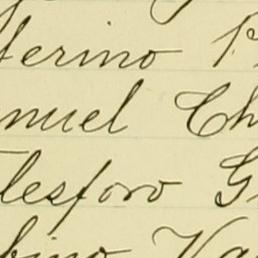 ferino P
nuel Ch
lesforo G
bino Va